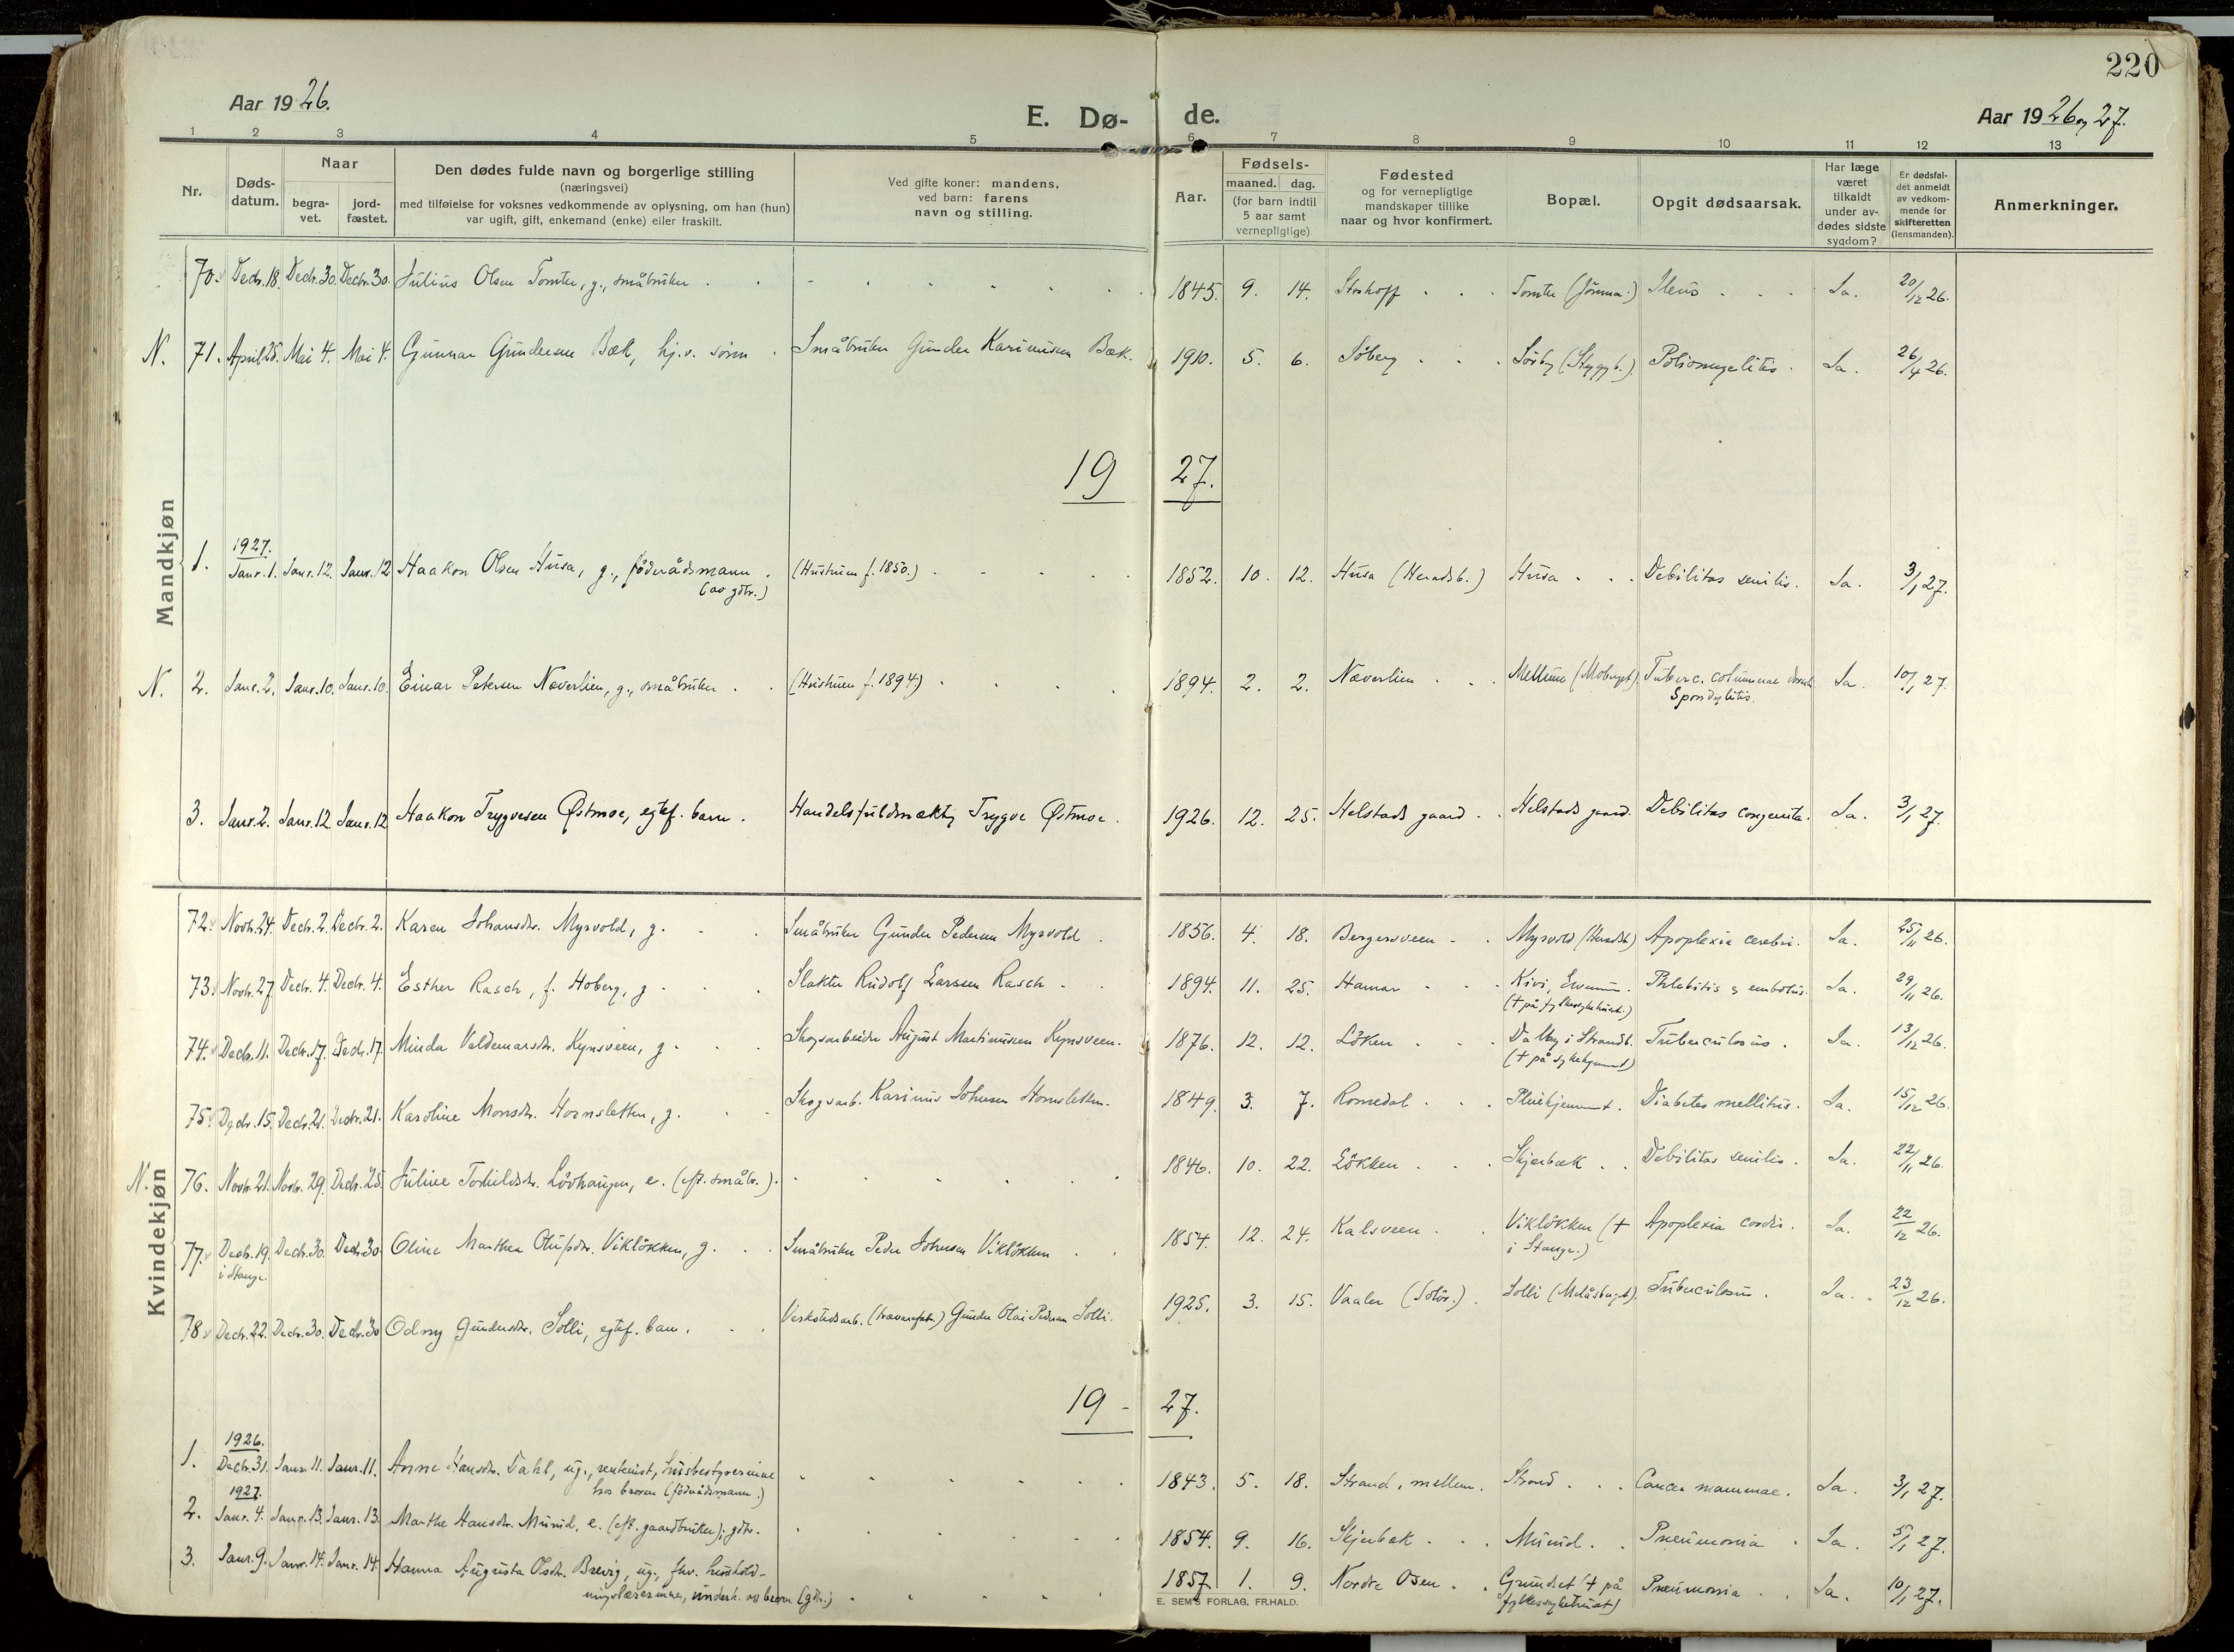 220
Aar 1926.
E. Dø- de.
Aar 1926 og 27.
1 2 3 4 5 6 7 8 9 10 11 12 13
Nr.
Døds-
datum.
Naar
begra-
vet.
jord-
fæstet.
Den dødes fulde navn og borgerlige stilling
(næringsvei)
med tilføielse for voksnes vedkommende av oplysning, om han (hun)
var ugift, gift, enkemand (enke) eller fraskilt.
Ved gifte koner: mandens,
ved barn: farens
navn og stilling.
Aar.
Fødsels-
maaned. dag.
(for barn indtil
5 aar samt
vernepliglige)
Fødested
og for vernepligtige
mandskaper tillike
naar og hvor konfirmert.
Bopæl.
Opgit dødsaarsak.
Har læge
været
tilkaldt
under av-
dødes sidste
sygdom?
Er dødsfal-
det anmeldt
av vedkom-
mende for
skifteretten
(lensmanden).
Anmerkninger.
Mandkjøn
70. Decbr. 18. Decbr. 30. Decbr. 30. Julius Olsen Tomter, g., småbruker 1845. 9. 14. Storhoff Tomter (Jømna.) Ileus Ja. 20/12 26.
N. 71. April 25. Mai 4. Mai 4. Gunnar Gundersen Bæk, hj.v. sønn Småbruker Gunder Karinusen Bæk. 1910. 5. 6. Söberg Sörby (Stryggb.) Poliomyelitis. Ja. 26/4 26.
19 27.
1927.
1. Janr. 1. Janr. 12. Janr. 12 Haakon Olsen Husa, g., föderådsmann (Hustruen f. 1850.) 1852. 10. 12. Husa (Heradsb.) Husa Debilitas senilis. Ja. 3/1 27.
(av gdbr.)
N. 2. Janr. 2. Janr. 10. Janr. 10. Einar Petersen Næverlien, g., småbruker (Hustruen f. 1894) 1894. 2. 2. Næverlien Mellum (Mobygd.) Tuberc. columnae Ja. 10/1 27.
Spondylitis.
3. Janr. 2. Janr. 12 Janr. 12 Haakon Trygvesen Østmoe, egtef. barn. Handelsfuldmæktig Trygve Østmoe. 1926. 12. 25. Helstads gaard Helstads gaard. Debilitas congenita. Ja. 3/1 27.
Kvindekjøn
72. Novbr. 24. Decbr. 2. Decbr. 2. Karen Johansdtr. Myrvold, g. Småbruker Gunder Pedersen Myrvold 1856. 4. 18. Bergersveen Myrvold (Heradsb.) Apoplexia cerebri. Ja. 25/11 26.
73. Novbr. 27 Decbr. 4. Decbr. 4. Esther Rasch, f. Hoberg, g. Slakter Rudolf Larsen Rasch 1894. 11. 25. Hamar Kivi, Phlebitis & embolus. Ja. 29/11 26.
(† på fylkessykehuset.)
74. Decbr. 11. Decbr. 17. Decbr. 17. Minda Valdemarsdtr. Kynsveen, g. Skogsarbeider August Martinusen Kynsveen. 1876. 12. 12. Löken Dalby i Strandb. Tuberculosis. Ja. 13/12 26.
(† på sykehjemmet)
75. Decbr. 15. Decbr. 21. Decbr. 21. Karoline Monsdtr. Hornsletten, g. Skogsarb. Karinus Johnsen Hornsletten. 1849. 3. 7. Romedal Pleiehjemmet. Diabetes mellitus. Ja. 15/12 26.
N. 76. Novbr. 21. Novbr. 29. Decbr. 25. Juline Torkildsdtr. Lövhaugen, e. (eft. småbr.) 1846. 10. 22. Lökken Skjerbæk Debilitas senilis. Ja. 22/11 26.
77. Decbr. 19. Decbr. 30. Decbr. 30 Oline Marthea Olufsdtr. Viklökken, g. Småbruker Peder Johnsen Viklökken 1854. 12. 24. Kalsveen Viklökken († Apoplexia cordis. Ja. 22/12 26.
i Stange. i Stange.)
78. Decbr. 22. Decbr. 30. Decbr. 30 Odny Gundersdtr. Solli, egtef. barn. Verkstedsarb. Gunder Olai Pedersen Solli. 1925. 3. 15. Vaaler (Solör.) Solli Tuberculosis. Ja. 23/12 26.
19 - 27.
1926.
1. Decbr. 31. Janr. 11. Janr. 11. Anne Hansdtr. Dahl, ug., rentenist, husbestyrerinne 1843. 5. 18. Strand, mellem. Strand Cancer mammae. Ja. 3/1 27.
hos broren (föderådsmann.)
1927.
2. Janr. 4. Janr. 13. Janr. 13. Marthe Hansdtr. Munid, e. (eft. gaardbruker); gdbr. 1854. 9. 16. Skjerbæk Munid. Pneumonia Ja. 5/1 27.
3. Janr. 9. Janr. 14. Janr. 14. Hanna Augusta Olsdtr. Brevig, ug., fhv. hushold- 1857 1. 9. Nordre Osen Grundset († på Pneumonia Ja. 10/1 27.
ningslærerinne, underh. av broren (gdbr.) fylkessykehuset)
E. SEM'S FORLAG, FR.HALD.